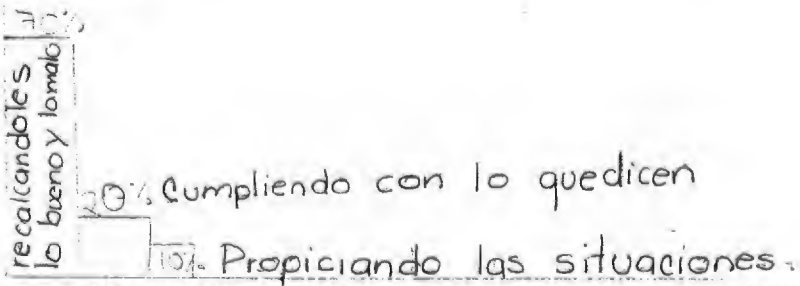 70%
recalcandoles
lo bueno y lo malo
20% Cumpliendo con lo quedicen
10% Propiciando las situaciones.